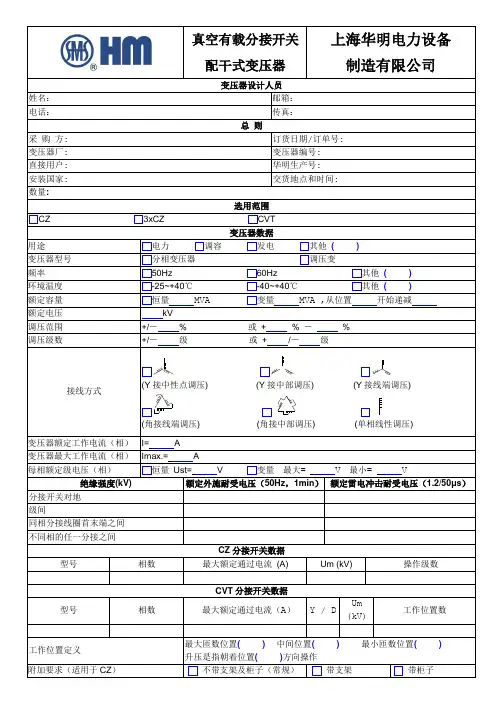 SMS
® HM
真空有载分接开关
配干式变压器
上海华明电力设备
制造有限公司
变压器设计人员
姓名： 邮箱：
电话： 传真：
总 则
采 购 方: 订货日期/订单号:
变压器厂: 变压器编号:
直接用户: 华明生产号:
安装国家: 交货地点和时间:
数量:
选用范围
CZ 3xCZ CVT
变压器数据
用途 电力 调容 发电 其他 ( )
变压器型号 分相变压器 调压变
频率 50Hz 60Hz 其他 ( )
环境温度 -25~+40℃ -40~+40℃ 其他 ( )
额定容量 恒量 MVA 变量 MVA ,从位置 开始递减
额定电压 kV
调压范围 +/－ % 或 + % － %
调压级数 +/－ 级 或 + /－ 级
接线方式
(Y 接中性点调压) (Y 接中部调压) (Y 接线端调压)
(角接线端调压) (角接中部调压) (单相线性调压)
变压器额定工作电流（相） I= A
变压器最大工作电流（相） Imax.= A
每相额定级电压（相） 恒量 Ust= V 变量 最大= V 最小= V
绝缘强度(kV) 额定外施耐受电压（50Hz，1min） 额定雷电冲击耐受电压（1.2/50μs）
分接开关对地
级间
同相分接线圈首末端之间
不同相的任一分接之间
CZ 分接开关数据
型号 相数 最大额定通过电流 (A) Um (kV) 操作级数
CVT 分接开关数据
型号 相数 最大额定通过电流（A） Y / D Um (kV) 工作位置数
工作位置定义 最大匝数位置( ) 中间位置( ) 最小匝数位置( )
升压是指朝着位置( )方向操作
附加要求（适用于 CZ） 不带支架及柜子（常规） 带支架 带柜子